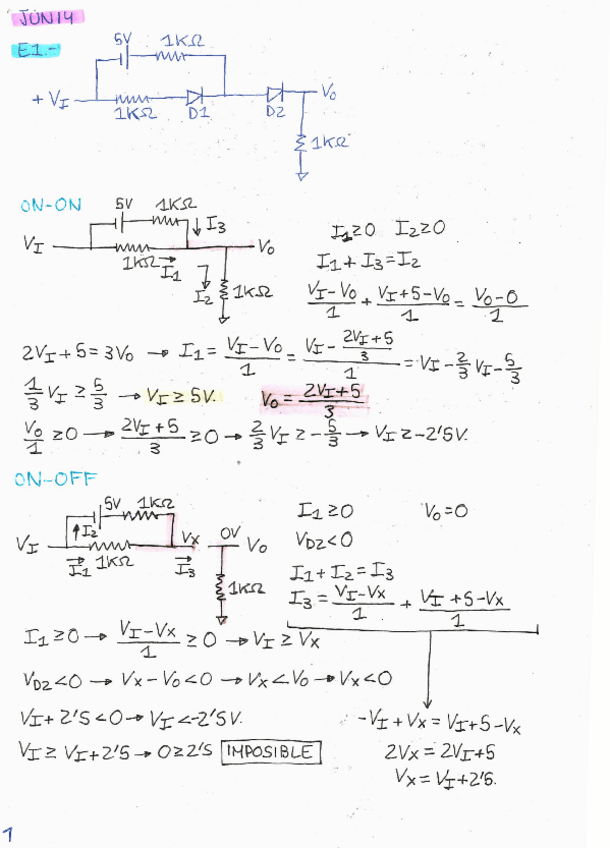 JUN14
E1.-
5V 1KΩ
+VI 1KΩ D1 D2 Vo
1KΩ
ON-ON
5V 1KΩ I3
VI 1KΩ I1 Vo
I2 1KΩ
I1≥0 I2≥0
I1+I3=I2
(VI-Vo)/1 + (VI+5-Vo)/1 = (Vo-0)/1
2VI+5=3Vo → I1= (VI-Vo)/1 = (VI - (2VI+5)/3)/1 = VI - 2/3 VI - 5/3
1/3 VI ≥ 5/3 → VI ≥ 5V. Vo = (2VI+5)/3
Vo/1 ≥0 → (2VI+5)/3 ≥0 → 2/3 VI ≥ -5/3 → VI ≥ -2'5V.
ON-OFF
5V 1KΩ
I2 Vx 0V
VI I1 1KΩ I3 Vo
1KΩ
I1≥0 Vo=0
VD2<0
I1+I2=I3
I3= (VI-Vx)/1 + (VI+5-Vx)/1
I1≥0 → (VI-Vx)/1 ≥0 → VI ≥ Vx
VD2<0 → Vx-Vo<0 → Vx<Vo → Vx<0
VI+2'5<0 → VI<-2'5V.
VI ≥ VI+2'5 → 0≥2'5 IMPOSIBLE
-VI+Vx=VI+5-Vx
2Vx=2VI+5
Vx=VI+2'5.
1